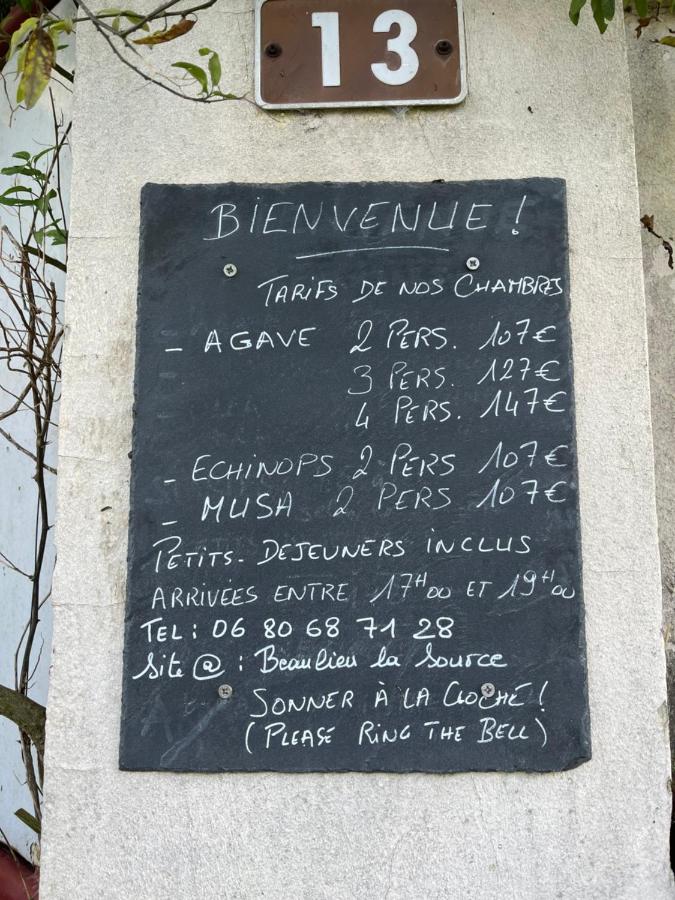 13
BIENVENUE !
TARIFS DE NOS CHAMBRES
- AGAVE 2 PERS. 107€
3 PERS. 127€
4 PERS. 147€
- ECHINOPS 2 PERS 107€
- MUSA 2 PERS 107€
PETITS-DEJEUNERS INCLUS
ARRIVÉES ENTRE 17H00 ET 19H00
TEL : 06 80 68 71 28
Site @ : Beaulieu la Source
SONNER À LA CLOCHE !
(PLEASE RING THE BELL)